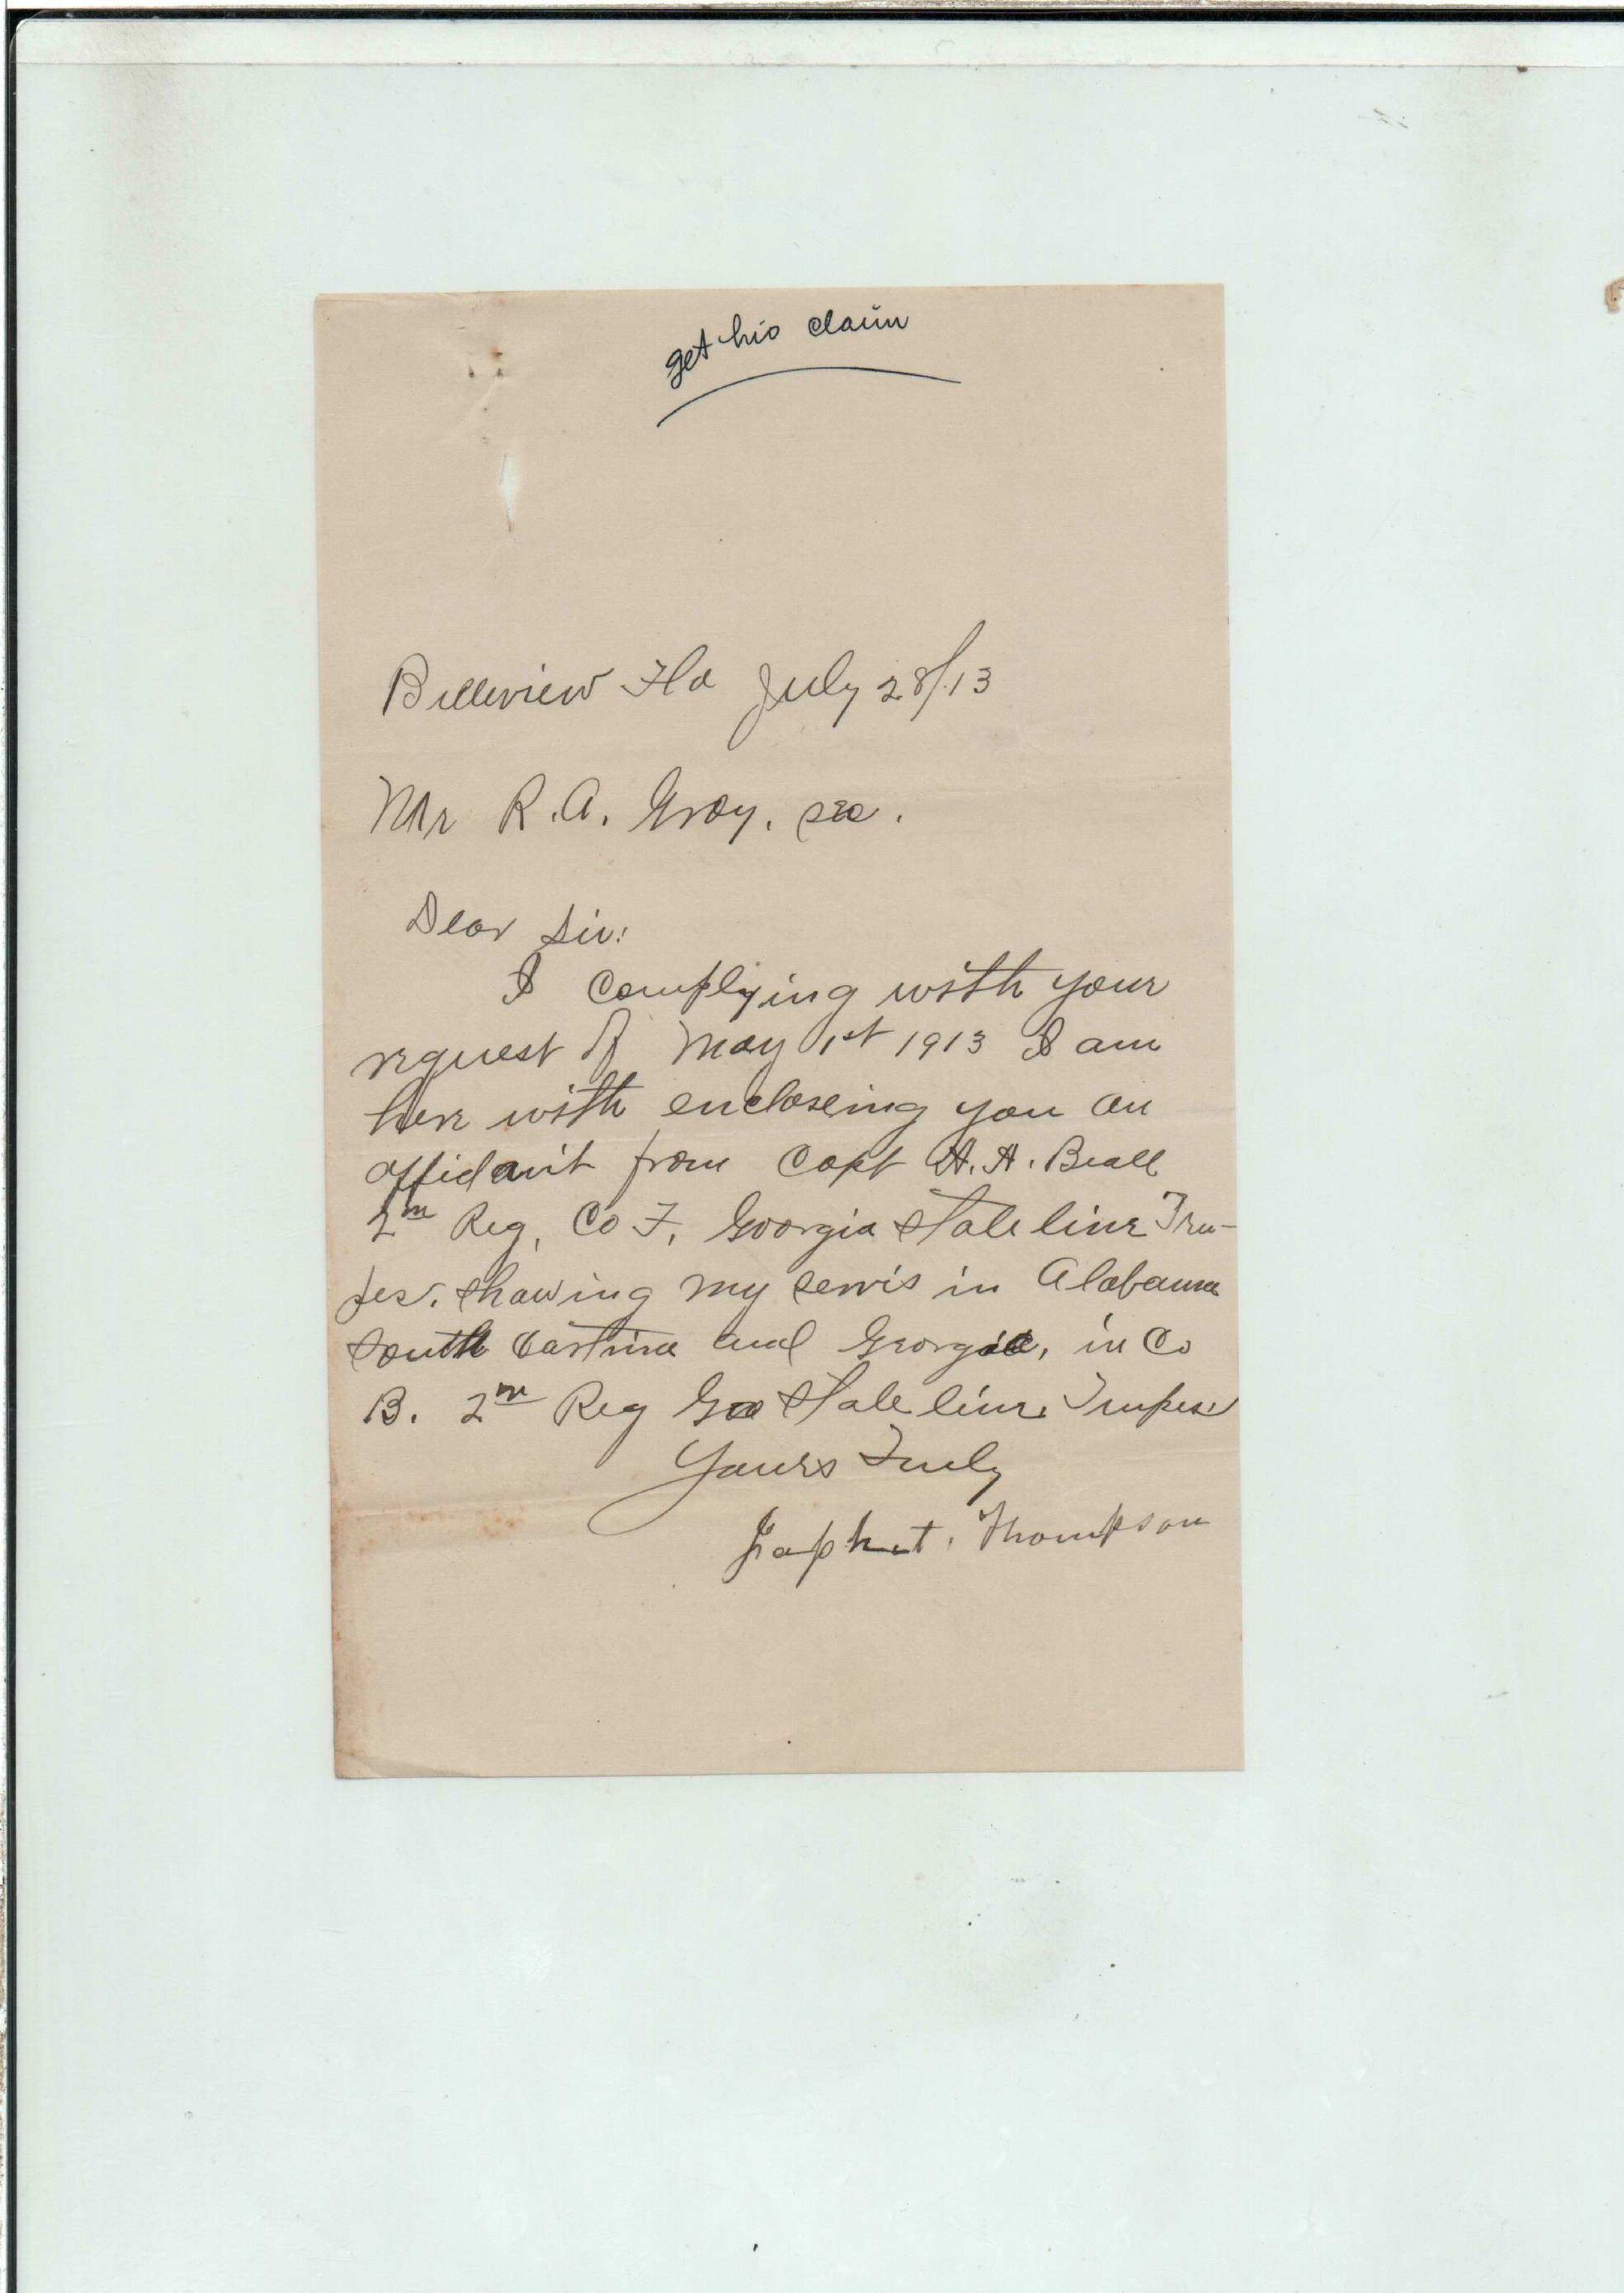 get his claim
Belleview Fla July 28/13
Mr R.A. Gray. sec.
Dear Sir:
I complying with your
request of May 1st 1913 I am
here with encloseing you an
affidavit from Capt A. A. Beall
2nd Reg, Co F, Georgia State line Tru-
pes. showing my servis in Alabama
South Carolina and Georgia, in Co
B. 2nd Reg Ga State line Trupes
Yours Truly
Japhet. Thompson